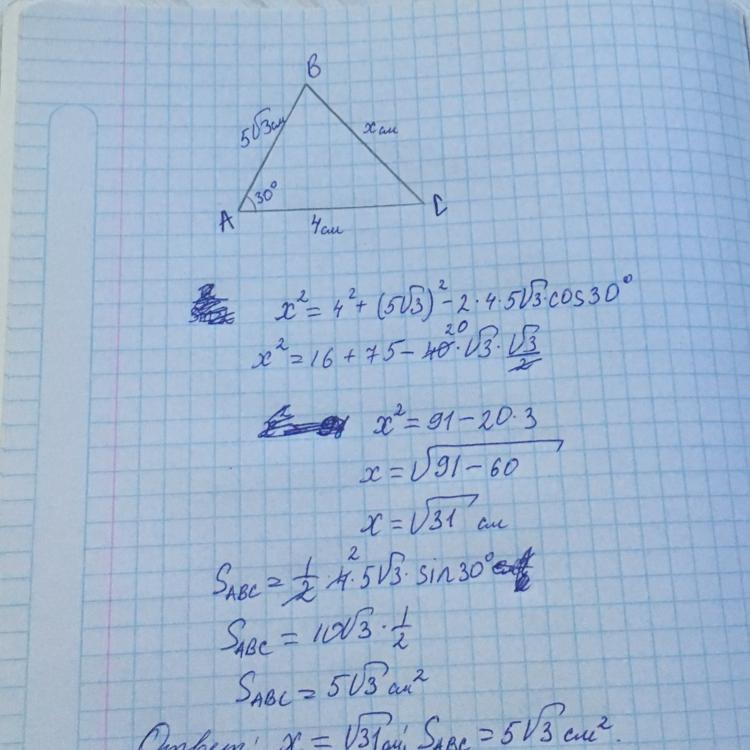 B
5√3см
x см
30°
A
C
4см
x² = 4² + (5√3)² - 2·4·5√3·cos30°
20
x² = 16 + 75 - 40·√3·√3/2
x² = 91 - 20·3
x = √91 - 60
x = √31 см
2
S_ABC = 1/2 4·5√3·sin30°
S_ABC = 10√3·1/2
S_ABC = 5√3 см²
Ответ: x = √31см; S_ABC = 5√3 см².